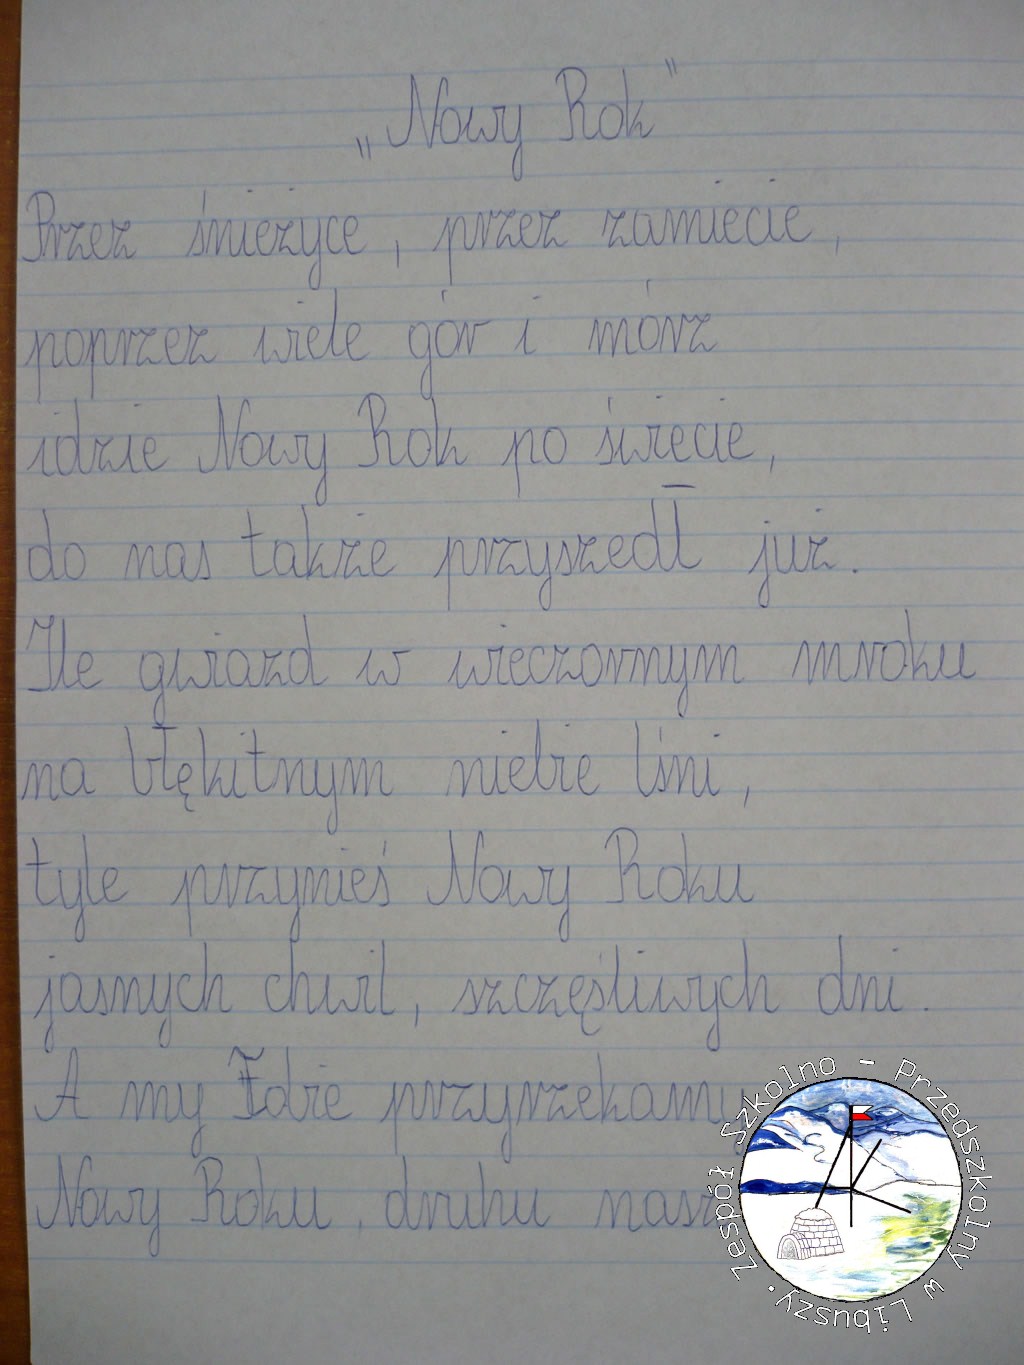 „Nowy Rok"
Przez śnieżyce, przez zamiecie,
poprzez wiele gór i mórz
idzie Nowy Rok po świecie,
do nas także przyszedł już.
Ile gwiazd w wieczornym mroku
na błękitnym niebie lśni,
tyle przynieś Nowy Roku
jasnych chwil, szczęśliwych dni.
A my Tobie przyrzekamy
Nowy Roku, druhu nasz
Zespół Szkolno - Przedszkolny w Libuszy.